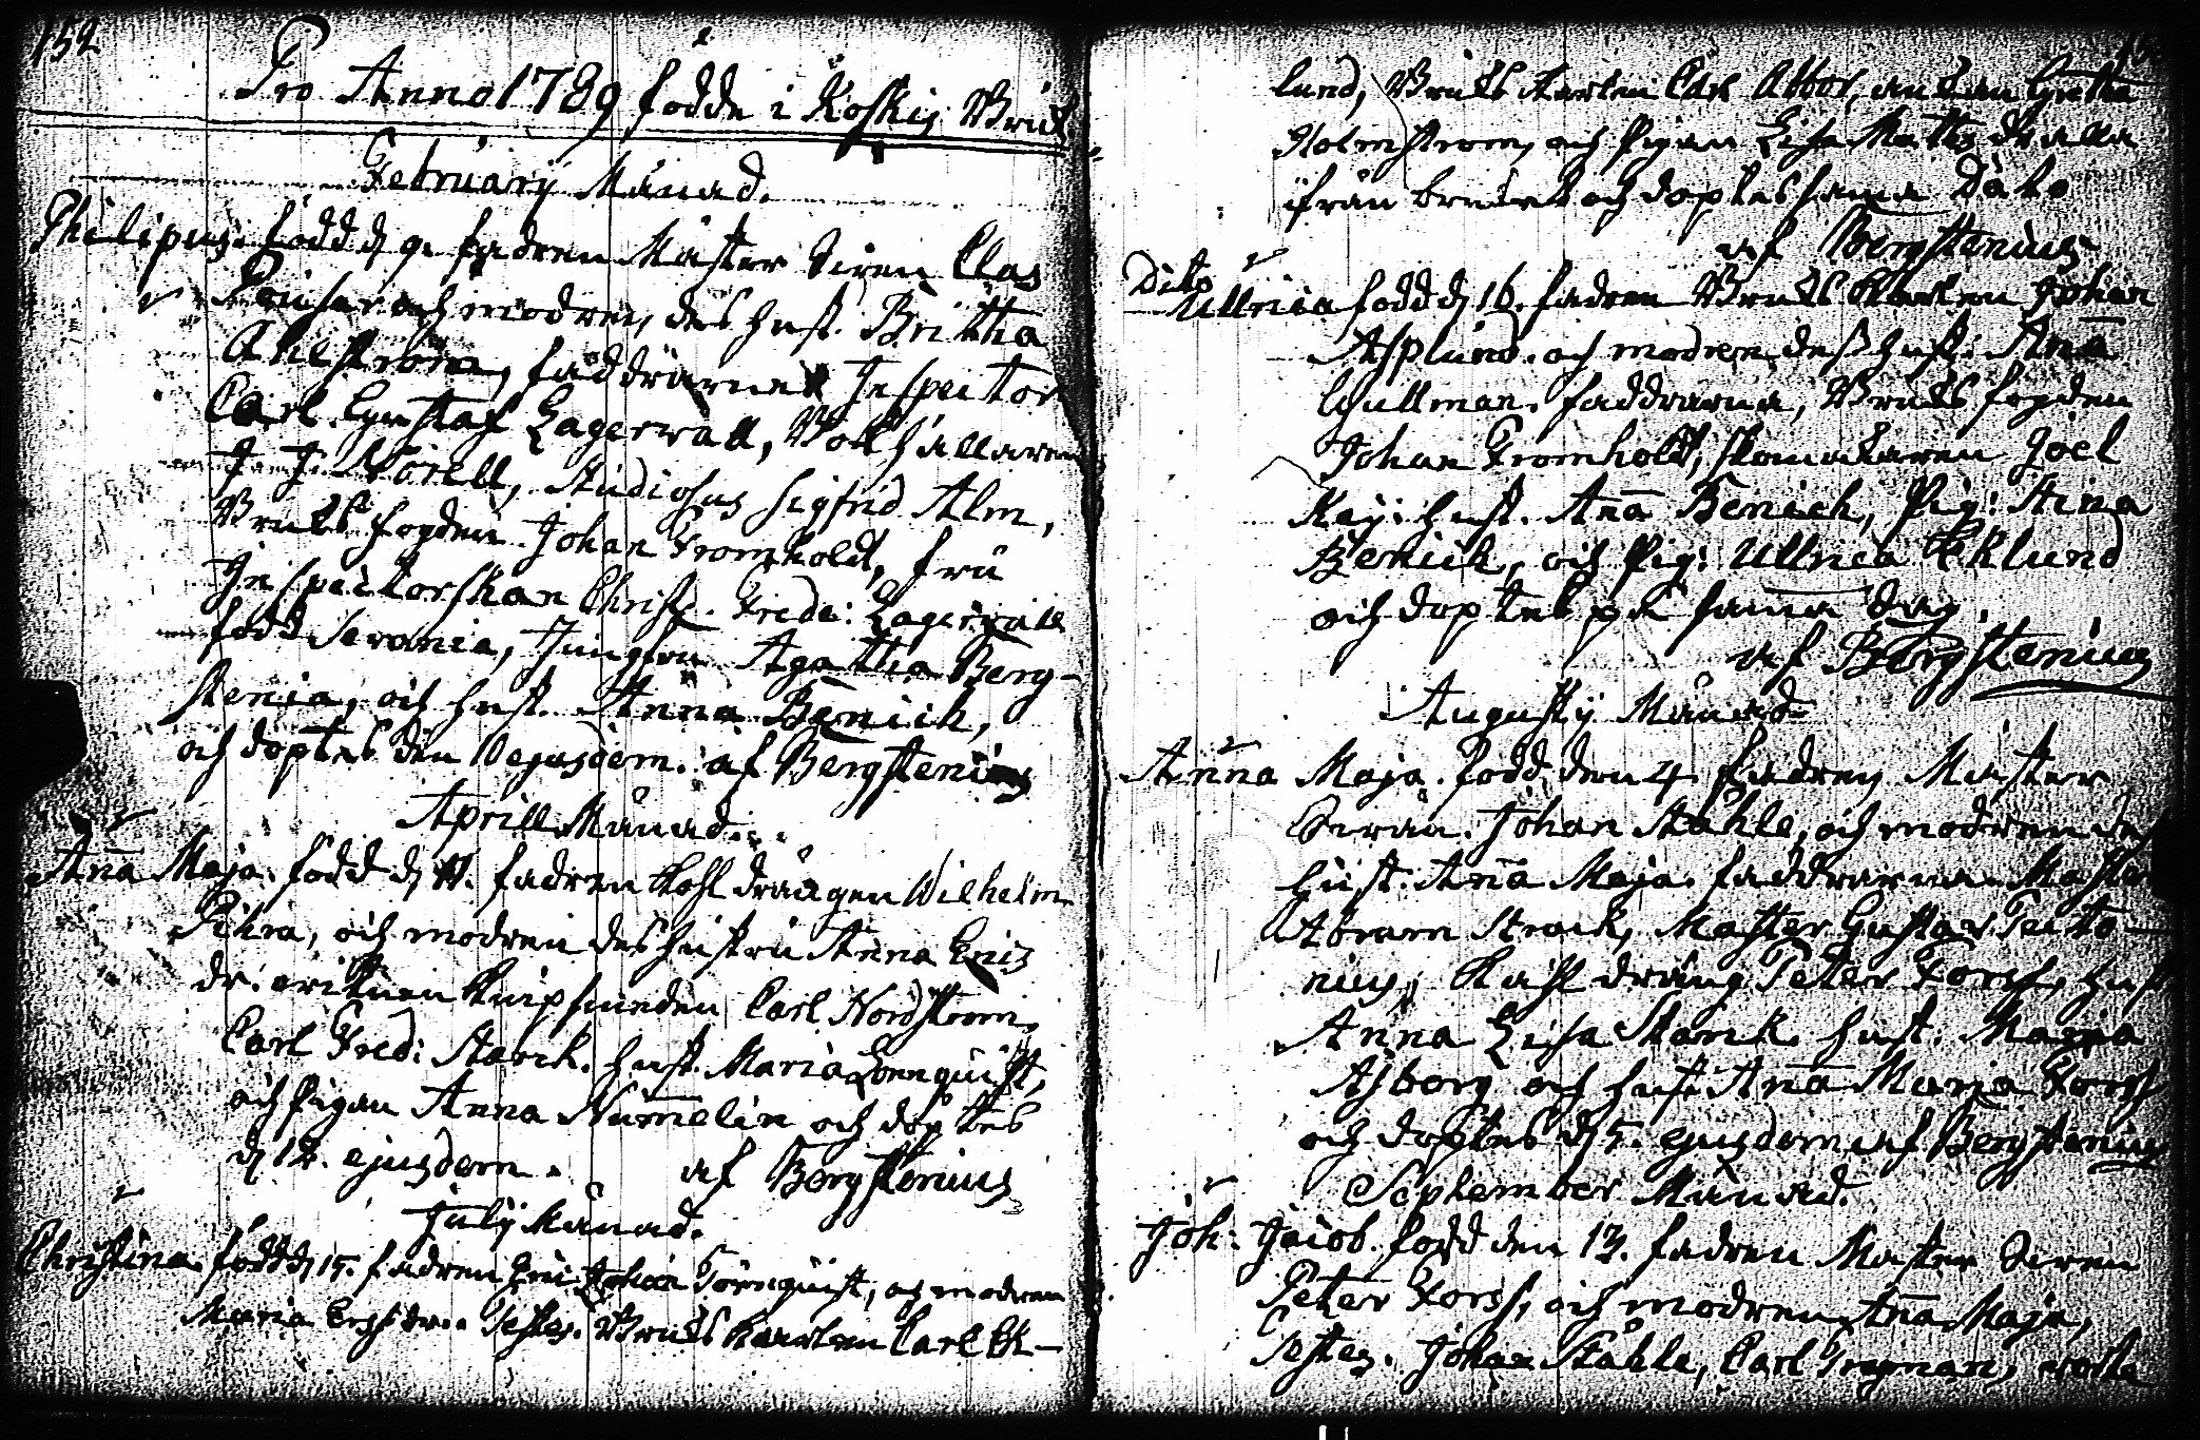 152
Pro Anno 1789 födde i Koskis Bruk
February Månad.
Philipus. född d 9. fadren Mäster Sven Clas
och modren, des hust. Britha
Ahlström, faddrarne Inspector
Carl Gustaf Lagerwall, Bokhållaren
J. J. Norell, Studiosus Sigfrid Alm,
Bruks fogden Johan Fromholdt, fru
Inspectorskan Christ. Frede: Lagerwall
född Serania, Jungfru Agatha Berg-
stenia, och hust. Anna Benick,
och döptes den 10 ejusdem. af Bergstenius
Aprill Månad.
Anna Maja. född d 11. fadren Kohl drängen Wilhelm
Pihra, och modren des hustru Anna Erics
dr. Carl Nordström,
Carl Fred: Starck. hust. Maria Lönnquist,
och Pigan Anna Numelin och döptes
d 12. ejusdem. af Bergstenius
July Månad.
Christina. född d 15. fadren Johan Törnquist, och modren
Maria Ersdr. Testes. Bruks Karlen Carl Ek-
lund, Bruks Karlen Carl Abbor, enkan Greta
Holmström, och Pigan Lisa Matts dr alla
ifrån bruket och döptes sama Dato
af Bergstenius
Dito
Ullrica född d 16. fadren Bruks Karlen Johan
Asplund. och modren dess hust. Anna
Gullman. faddrarna, Bruks fogden
Johan Fromholdt, Skomakaren Joel
Kay. hust. Anna Benick, Pig: Stina
Benick, och Pig: Ullrica Eklund
och döptes på sama dag.
af Bergstenius
Augusty Månad
Anna Maja. född den 4. fadren Mäster
Johan Ståhle, och modren des
hust. Anna Maja. faddrarna Mäster
Abram Strack, Mäster Gustav Tecto-
nius, Kohl dräng Peter Forss, hust
Anna Lisa Starck hust. Maria
Åsborg och hust. Anna Maria Forss
och döptes d 5. ejusdem af Bergstenius
September Månad.
Joh. Jacob. född den 13. fadren Mäster Sven
Peter Forss, och modren Anna Maja,
Testes. Johan Ståhle, Carl